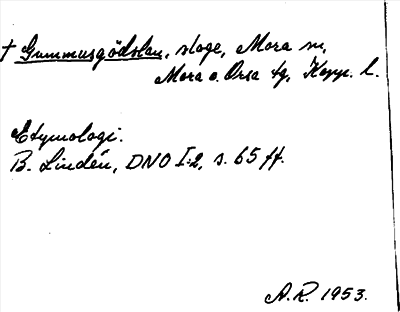 † Gummusgödslan, sloge, Mora sn,
Mora o. Orsa tg, Kopp. l.
Etymologi.
B. Lindén, DNO I:2, s. 65 ff.
A.R. 1953.